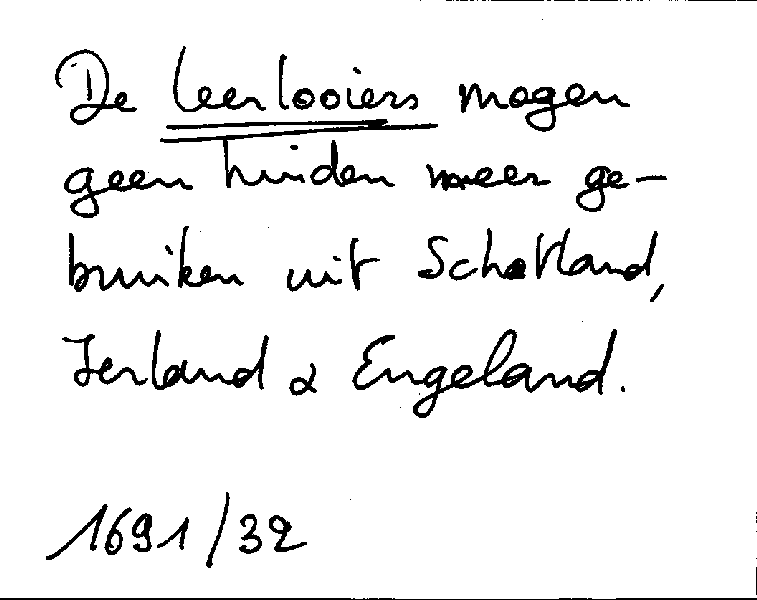 De leerlooiers mogen
geen huiden meer ge-
bruiken uit Schotland,
Ierland & Engeland.
1691/32